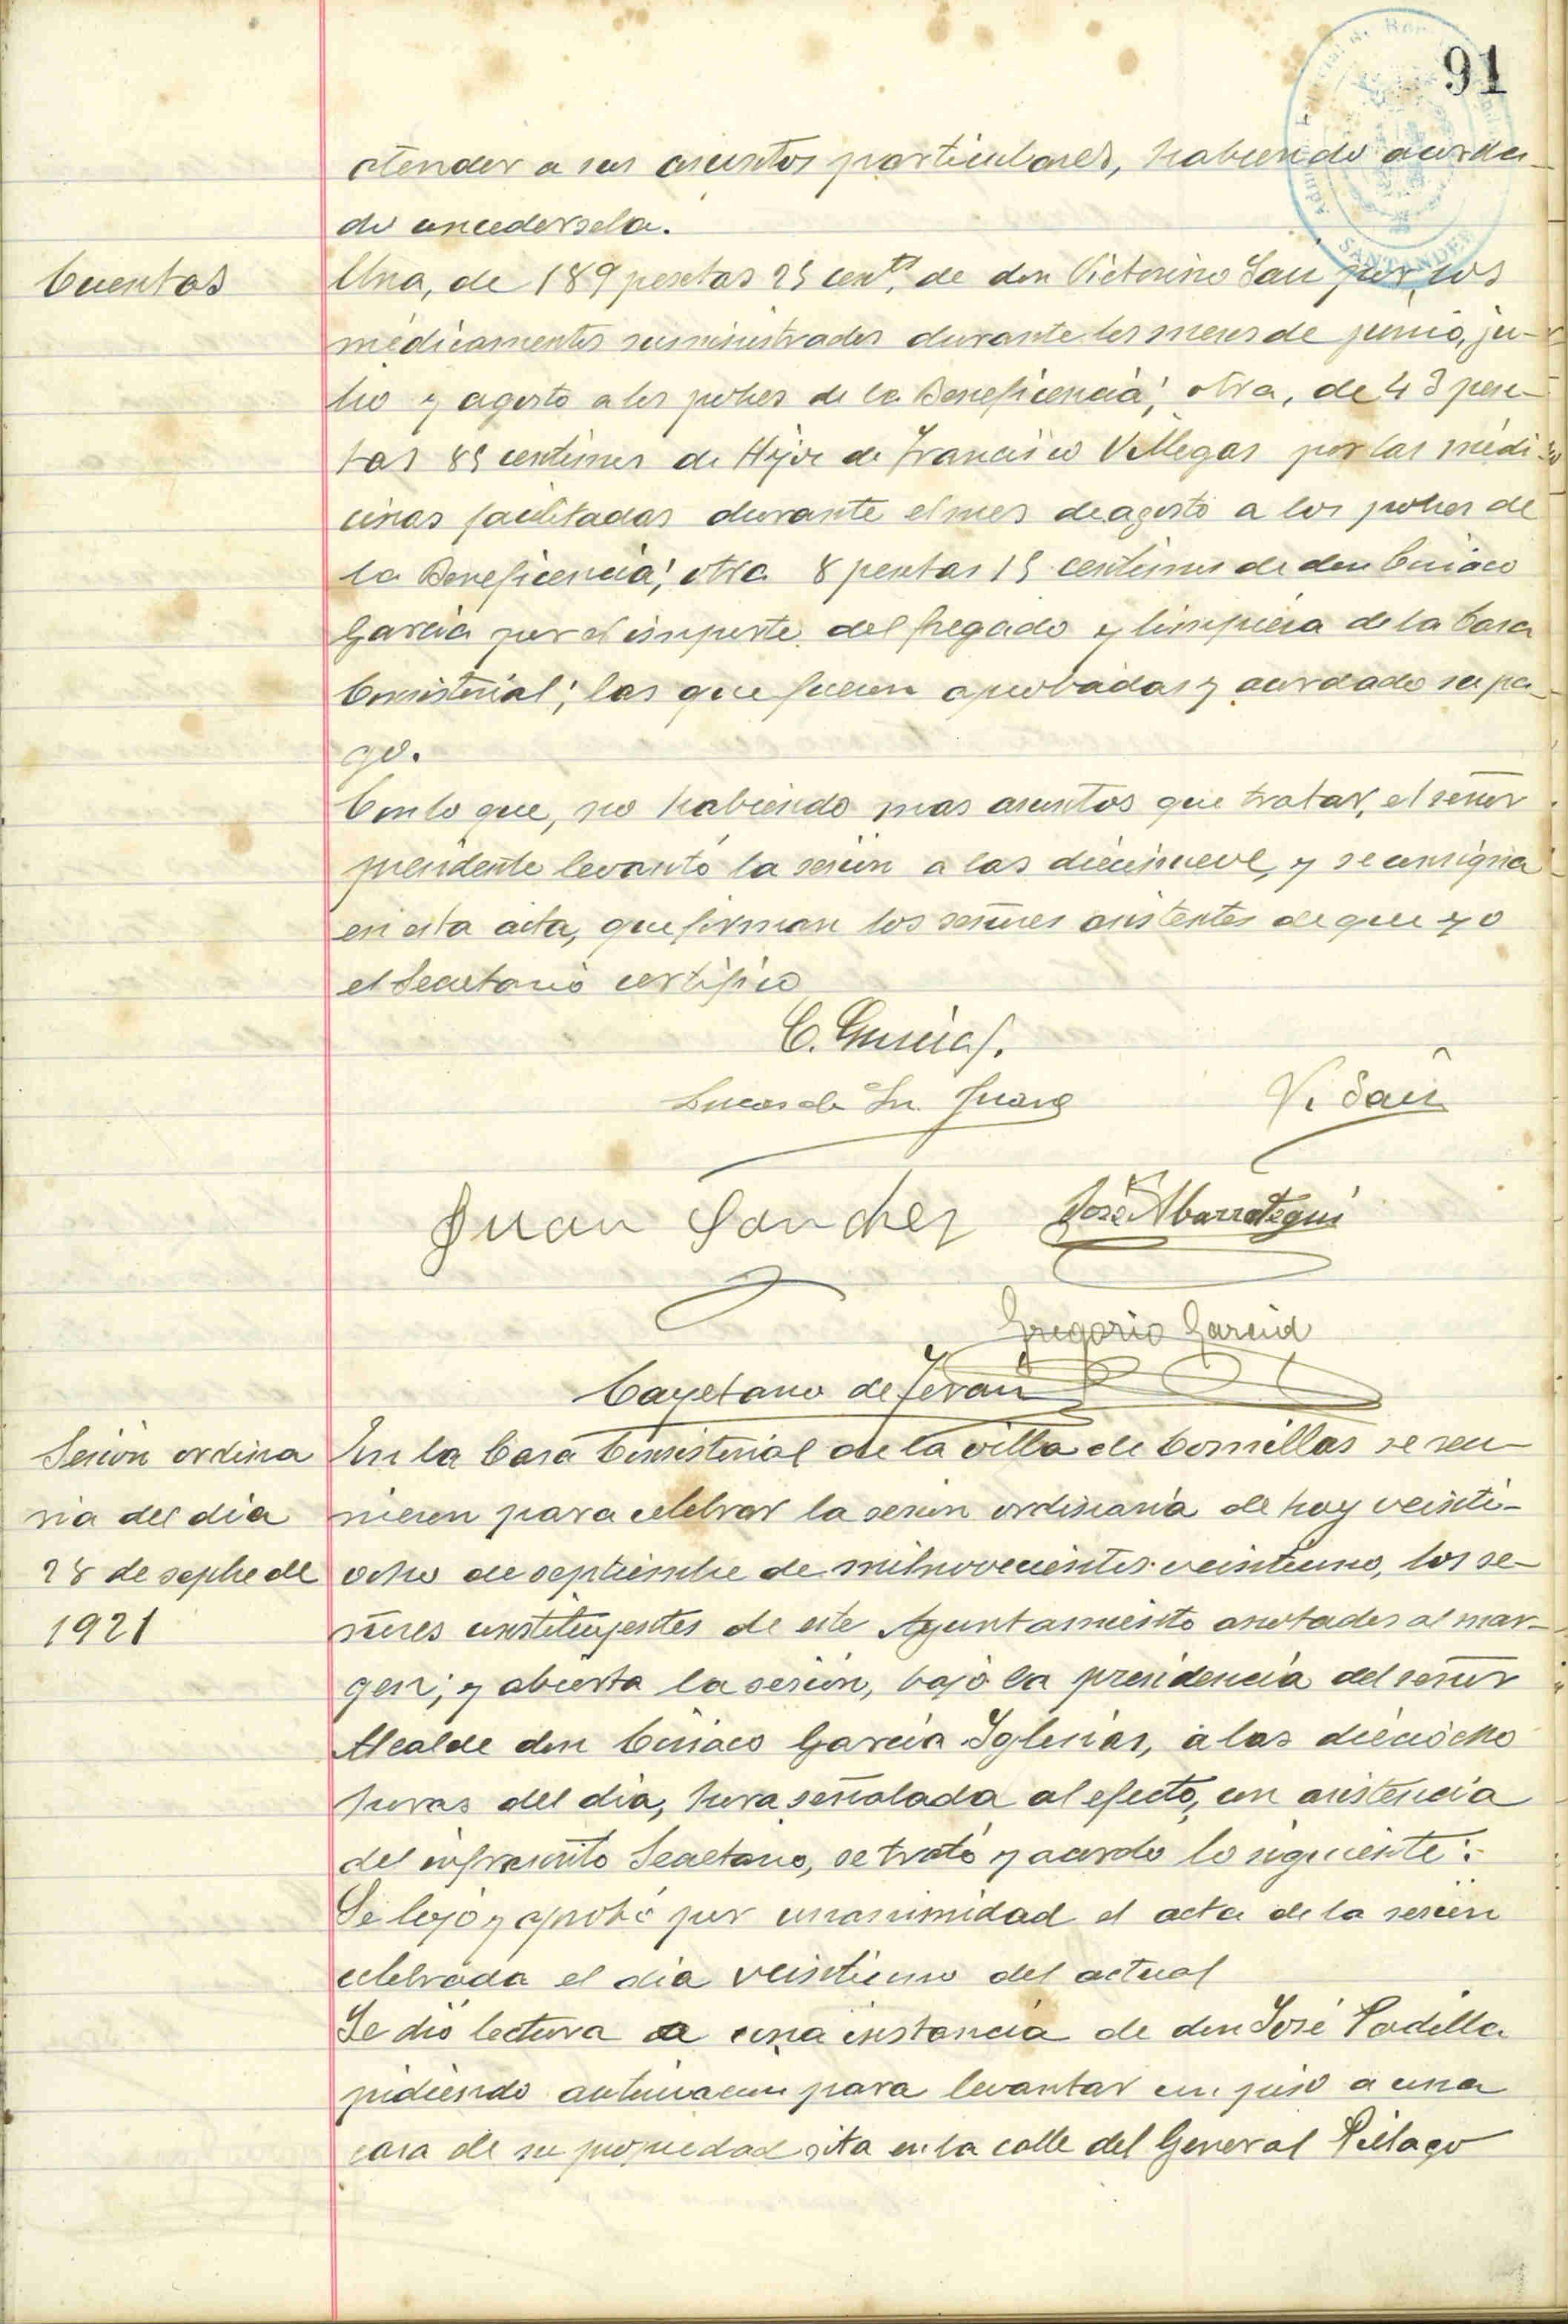 91
atender a sus asuntos particulares, habiendo acorda-
do concedersela.
Cuentas
Una, de 189 pesetas 25 cent.s de don Victorino Sau por los
medicamentos suministrados durante los meses de junio, ju-
lio y agosto a los pobres de la Beneficencia; otra, de 43 pese-
tas 85 centimos de Hijos de Francisco Villegas por las medi
cinas facilitadas durante el mes de agosto a los pobres de
la Beneficencia; otra 8 pesetas 15 centimos de don Ciriaco
Garcia por el importe del fregado y limpieza de la Casa
Consistorial; las que fueron aprobadas y acordado su pa-
go.
Con lo que, no habiendo mas asuntos que tratar, el señor
presidente levantó la sesión a las diecinueve, y se consigna
en esta acta, que firman los señores asistentes de que yo
el Secretario certifico
C. García
Lucas de Sn. Juan
V. Sau
Juan Sanchez
José Abarrategui
Gregorio García
Cayetano de Teran
Sesión ordina
ria del dia
28 de sepbre de
1921
En la Casa Consistorial de la villa de Comillas se reu-
nieron para celebrar la sesion ordinaria de hoy veinti-
ocho de septiembre de mil novecientos veintiuno, los se-
ñores constituyentes de este Ayuntamiento anotados al mar-
gen; y abierta la sesión, bajo la presidencia del señor
Alcalde don Ciriaco García Iglesias, a las dieciocho
horas del dia, hora señalada al efecto, con asistencia
del infrascrito Secretario, se trató y acordo lo siguiente:
Se leyó y aprobó por unanimidad el acta de la sesión
celebrada el dia veintiuno del actual
Se dió lectura a una instancia de don José Padilla
pidiendo autorizacion para levantar un piso a una
casa de su propiedad sita en la calle del General Piélago
SANTANDER